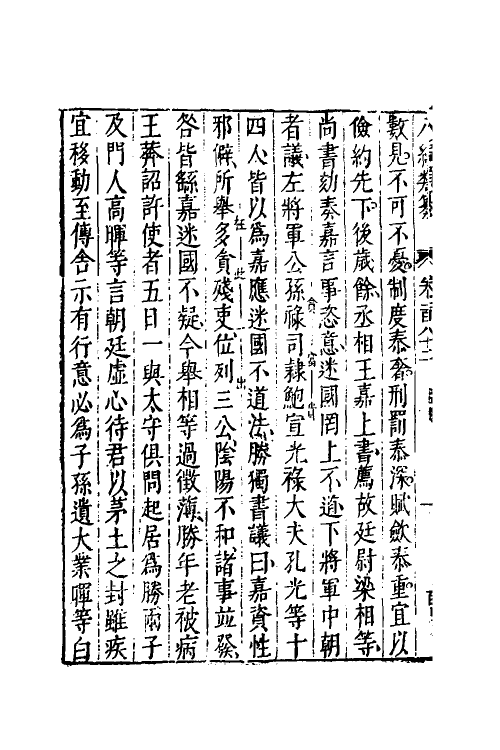 八編類纂　卷百八十二
數見不可不憂制度泰奢刑罰泰深賦歛泰重宜以
儉約先下後歲餘丞相王嘉上書薦故廷尉梁相等
尚書劾奏嘉言事恣意迷國罔上不道下將軍中朝
者議左將軍公孫祿司隸鮑宣光祿大夫孔光等十
四人皆以爲嘉應迷國不道法勝獨書議曰嘉資性
邪僻所舉多貪殘吏位列三公陰陽不和諸事並廢
咎皆繇嘉迷國不疑今舉相等過徵薄勝年老被病
王莽詔許使者五日一與太守俱問起居爲勝兩子
及門人高暉等言朝廷虛心待君以茅土之封雖疾
宜移動至傳舍示有行意必爲子孫遺大業暉等白